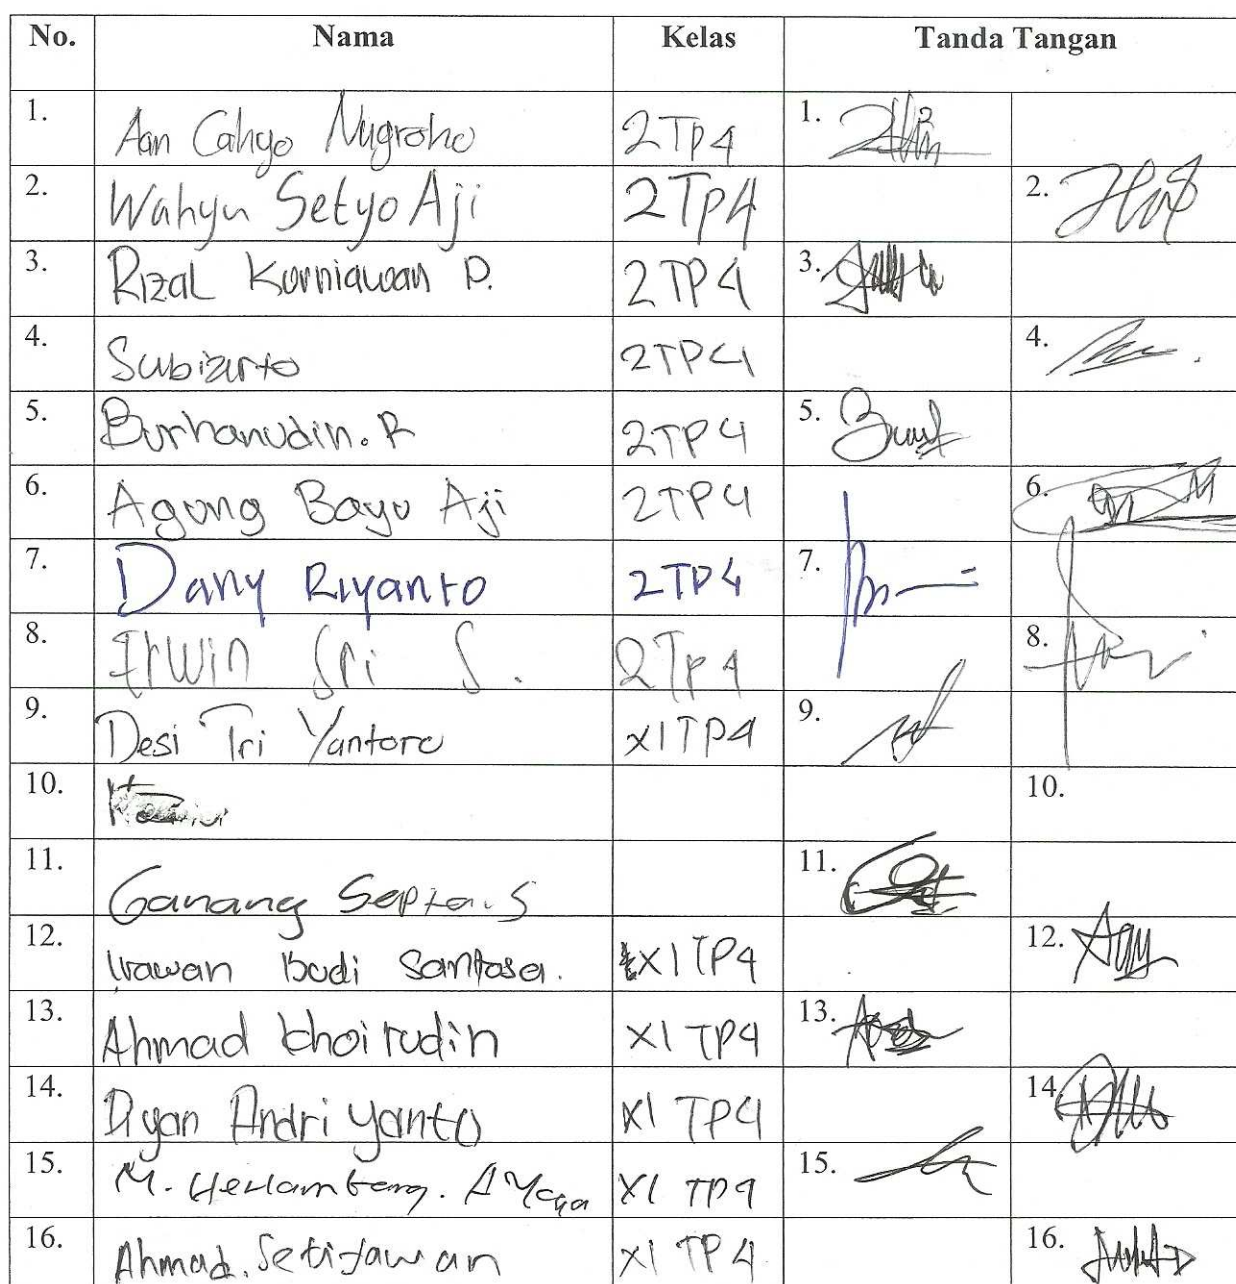 No. Nama Kelas Tanda Tangan
1. Aan Cahyo Nugroho 2TP4 1.
2. Wahyu Setyo Aji 2TP4 2.
3. Rizal Kurniawan P. 2TP4 3.
4. Subiarto 2TP4 4.
5. Burhanudin. R 2TP4 5.
6. Agung Bayu Aji 2TP4 6.
7. Dany Riyanto 2TP4 7.
8. Irwin Sri S. 2TP4 8.
9. Desi Tri Yantoro XI TP4 9.
10. 10.
11. Ganang Septa. S 11.
12. Irawan Budi Santosa. XI TP4 12.
13. Ahmad khoirudin XI TP4 13.
14. Dyan Andri yanto XI TP4 14.
15. M. Herlambang. XI TP4 15.
16. Ahmad. Setiyawan XI TP4 16.